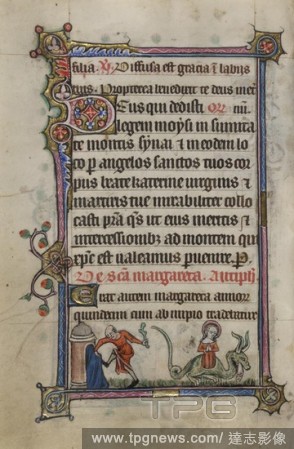 filia. V. Diffusa est gracia i labiis
tuis. Propterea benedixit te deus i et
Deus qui dedisti or. m.
legem moysi in summita
te montis synai et in eodem lo
co p angelos sanctos tuos cor
pus beate katerine virginis et
martiris tue mirabiliter collo
casti pra qs ut eius meritis et
intercessionibz ad montem qui
xpc est valeamus pervenire. P.
De sca margareta. Antiph.
Erat autem margareta annor
quindecim cum ab impio traderetur
TPG
www.tpgnews.com / 達志影像